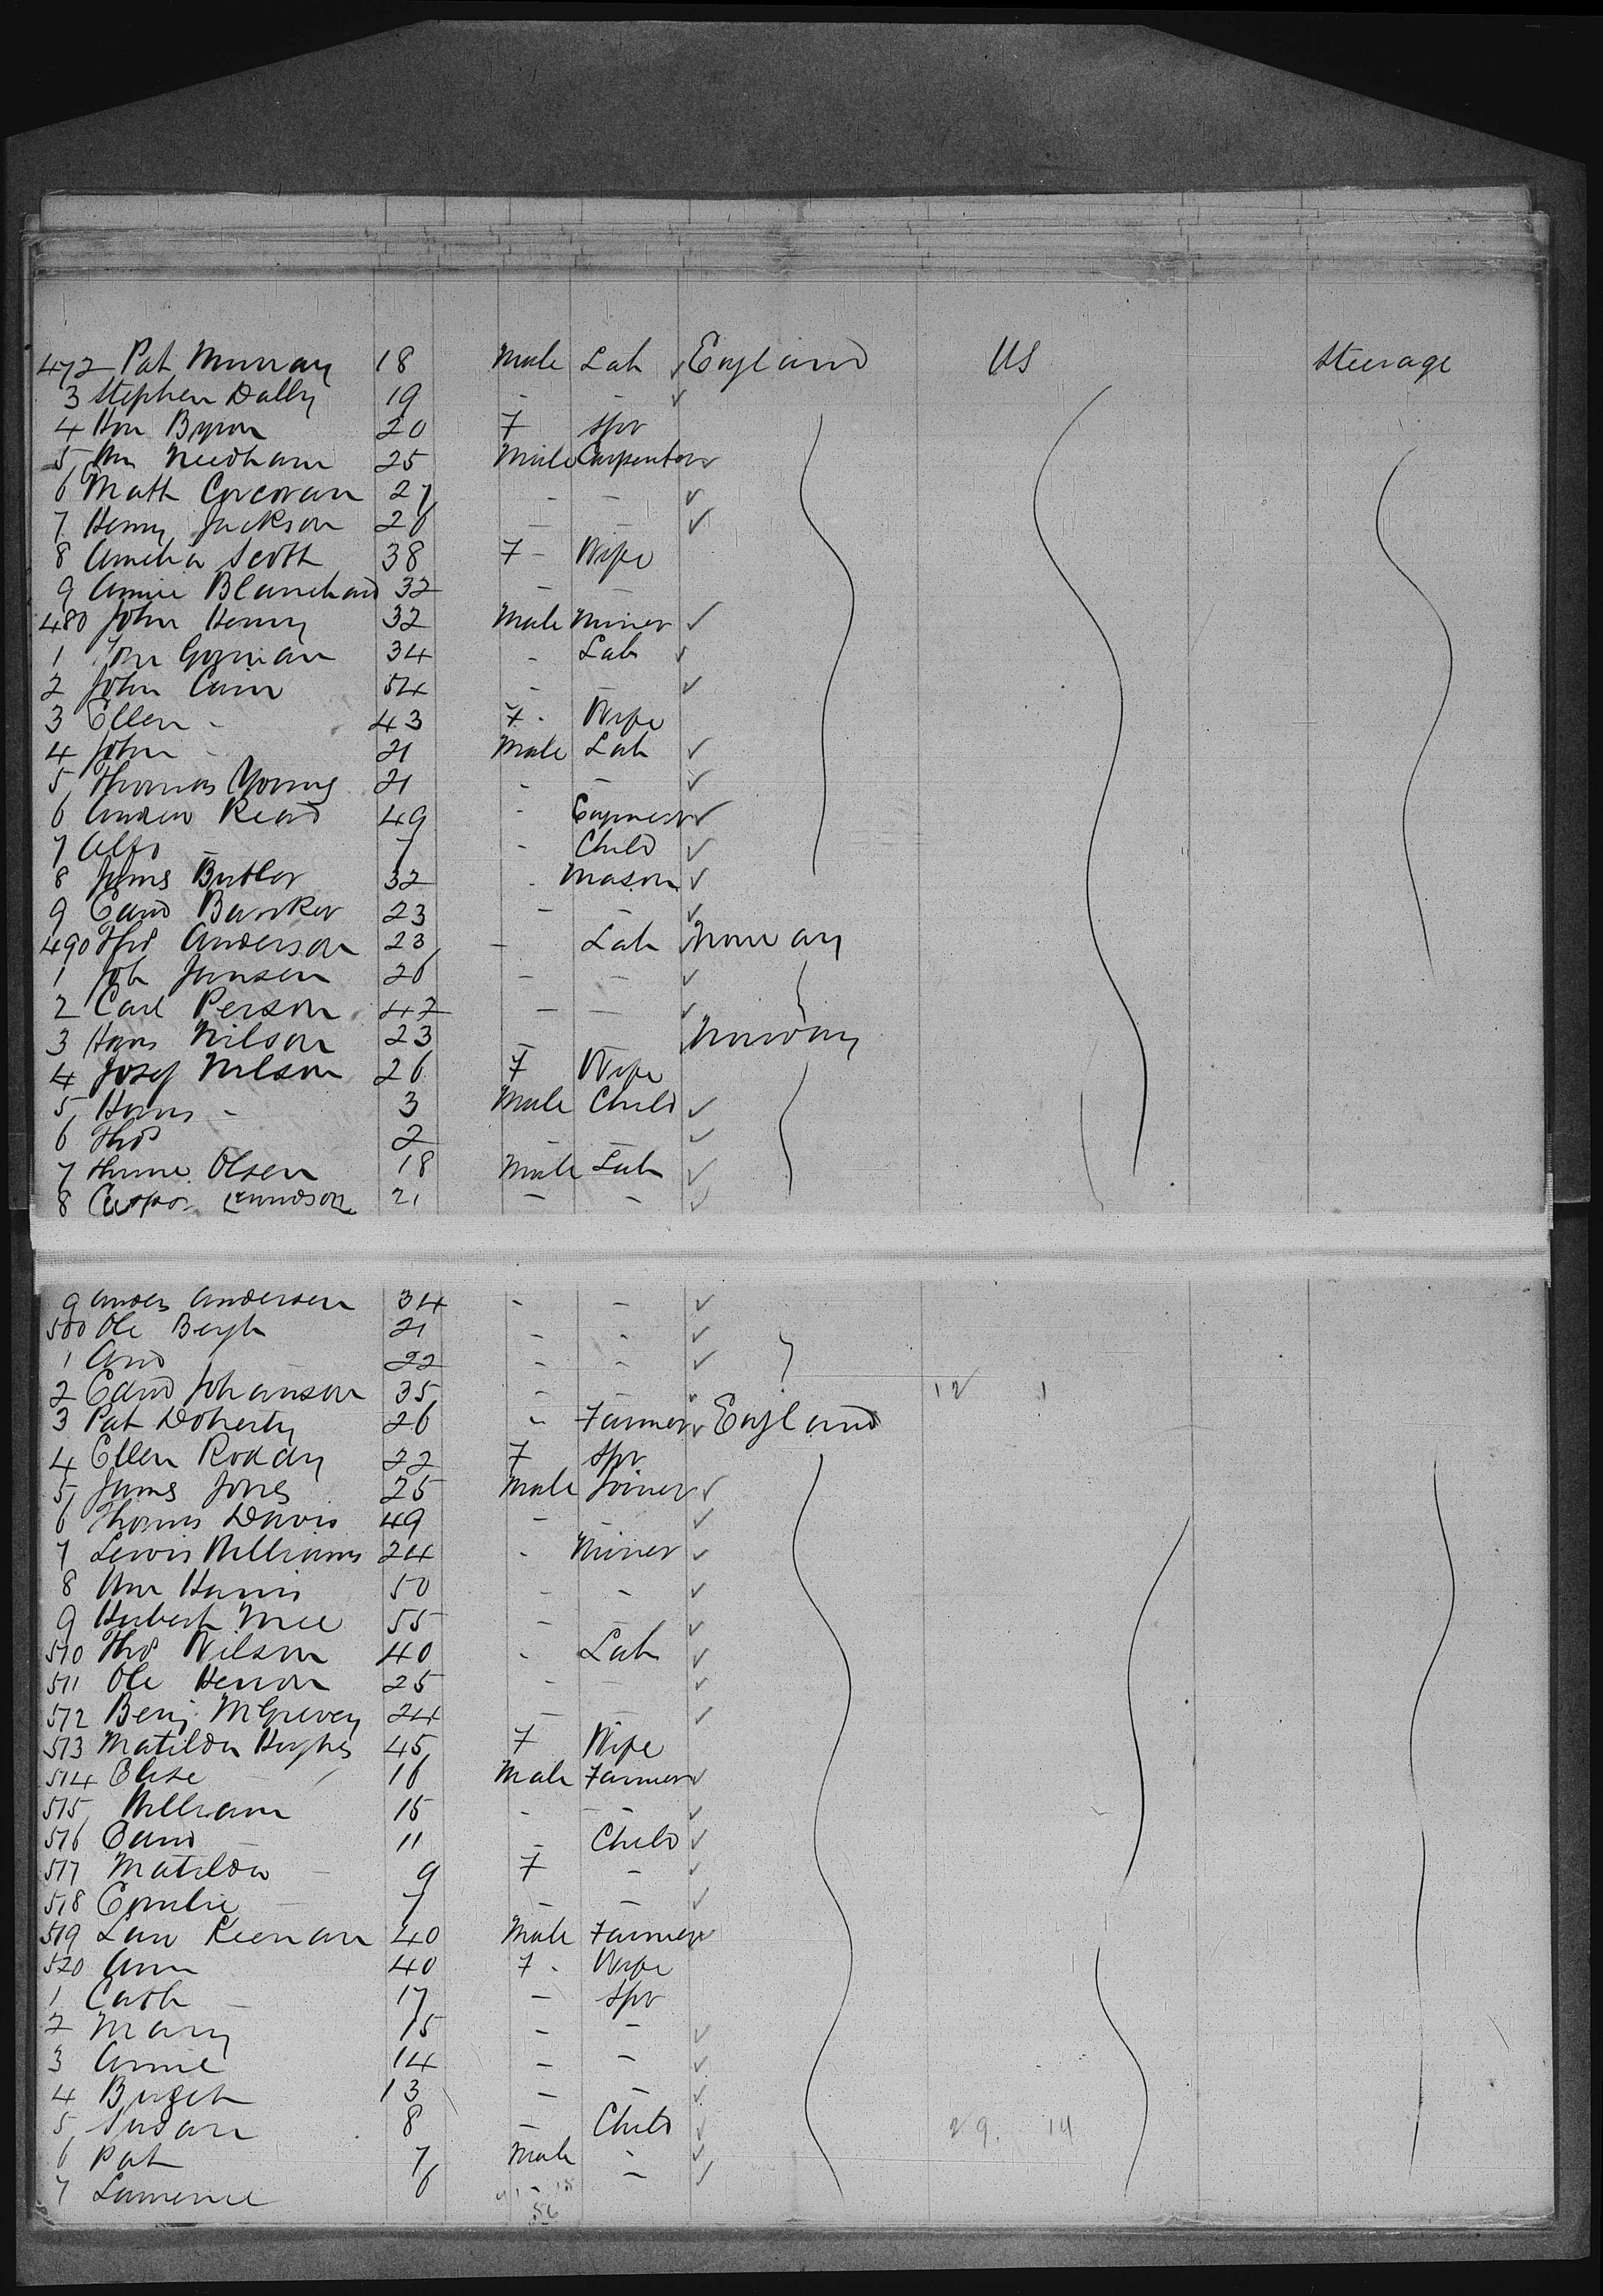 472 Pat Murray 18 Male Lab ✓ England US Steerage
3 Stephen Dalby 19 - - ✓
4 Hon Byron 20 F Spr
5 Wm Needham 25 Male Carpenter ✓
6 Matt Corcoran 27 - - ✓
7 Henry Jackson 26 - - ✓
8 Amelia Scott 38 F - Wife
9 Annie Blanchard 32 - -
480 John Henry 32 Male Miner ✓
1 Tom Gorman 34 - Lab ✓
2 John Cain 54 - - ✓
3 Ellen - 43 F - Wife
4 John - 21 Male Lab ✓
5 Thomas Young 21 - - ✓
6 Andrew Read 49 - Engineer ✓
7 Alfd - 7 - Child ✓
8 James Butler 32 - Mason ✓
9 Edwd Banker 23 - - ✓
490 Thos Anderson 23 - Lab ✓ Norway
1 Joh Jansen 26 - - ✓
2 Carl Person 42 - - ✓
3 Hans Nilson 23 - Norway
4 Josef Nilson 26 F Wife
5 Hans - 3 Male Child ✓
6 Thos 2 - - ✓
7 Olsen 18 Male Lab ✓
8 21 - - ✓
9 Anders Andersen 34 - - ✓
500 Ole Bergh 21 - - ✓
1 And 22 - - ✓
2 Edwd Johanson 35 - - ✓ 12 1
3 Pat Doherty 26 - Farmer ✓ England
4 Ellen Roddy 22 F Spr
5 James Jones 25 Male Joiner ✓
6 Thomas Davis 49 - - ✓
7 Lewis Williams 24 - Miner ✓
8 Wm Harris 50 - - ✓
9 Herbert Mee 55 - - ✓
510 Thos Wilson 40 - Lab ✓
511 Ole Henson 25 - - ✓
512 Benj McGrevey 24 - - ✓
513 Matilda Hughes 45 F Wife
514 Elise - 16 Male Farmer ✓
515 William 15 - - ✓
516 Edwd - 11 - Child ✓
517 Matilda - 9 F - ✓
518 Emilie - 7 - - ✓
519 Law Keenan 40 Male Farmer ✓
520 Ann 40 F - Wife
1 Cath - 17 - Spr
2 Mary 15 - - ✓
3 Annie 14 - - ✓
4 Bridget 13 - - ✓
5 Susan 8 - Child ✓ 29. 14
6 Pat 7 Male - ✓
7 Lawrence 6 - ✓
56